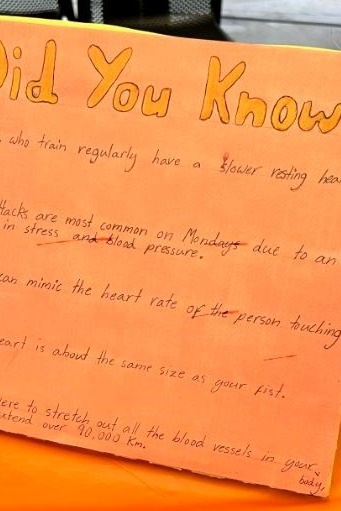 Did You Know
who train regularly have a slower resting hea
tacks are most common on Mondays due to an
in stress and blood pressure.
can mimic the heart rate of the person touching
eart is about the same size as your fist.
ere to stretch out all the blood vessels in your
body,
extend over 90,000 Km.